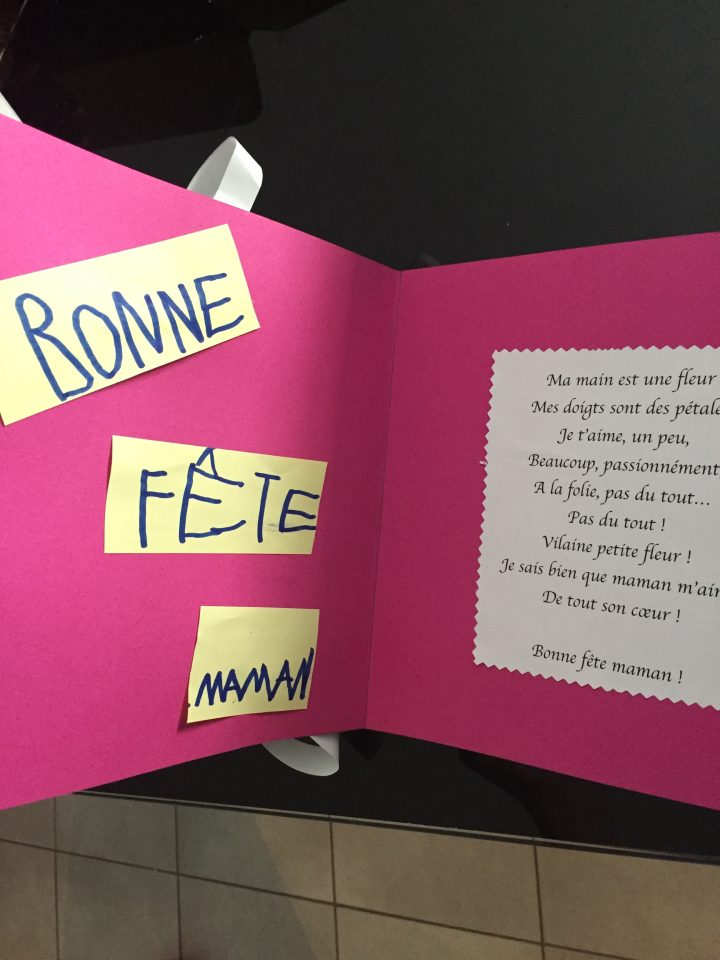 BONNE
FÊTE
MAMAN
Ma main est une fleur
Mes doigts sont des pétale
Je t'aime, un peu,
Beaucoup, passionnément,
A la folie, pas du tout...
Pas du tout !
Vilaine petite fleur !
Je sais bien que maman m'aim
De tout son cœur !
Bonne fête maman !